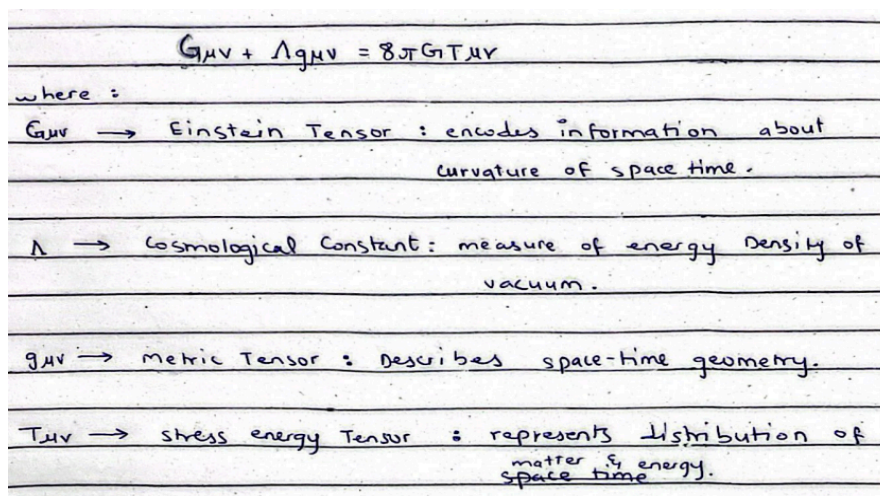 Gμν + Λgμν = 8πGTμν
where :
Gμν → Einstein Tensor : encodes information about
curvature of space time.
Λ → Cosmological Constant: measure of energy Density of
vacuum.
gμν → metric Tensor : Describes space-time geometry.
Tμν → stress energy Tensor : represents distribution of
matter & energy.
space time